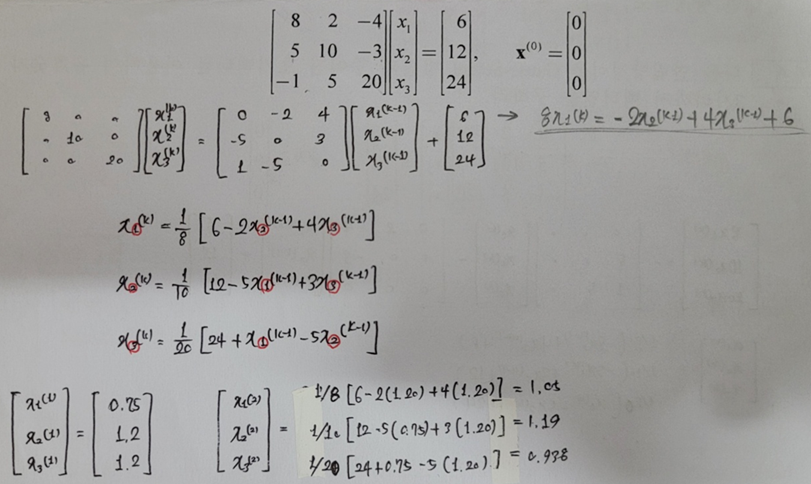 [8 2 −4; 5 10 −3; −1 5 20] [x₁; x₂; x₃] = [6; 12; 24], x⁽⁰⁾ = [0; 0; 0]
[8 0 0; 0 10 0; 0 0 20] [x₁⁽ᵏ⁾; x₂⁽ᵏ⁾; x₃⁽ᵏ⁾] = [0 -2 4; -5 0 3; 1 -5 0] [x₁⁽ᵏ⁻¹⁾; x₂⁽ᵏ⁻¹⁾; x₃⁽ᵏ⁻¹⁾] + [6; 12; 24] → 8x₁⁽ᵏ⁾ = -2x₂⁽ᵏ⁻¹⁾ + 4x₃⁽ᵏ⁻¹⁾ + 6
x₁⁽ᵏ⁾ = 1/8 [6 - 2x₂⁽ᵏ⁻¹⁾ + 4x₃⁽ᵏ⁻¹⁾]
x₂⁽ᵏ⁾ = 1/10 [12 - 5x₁⁽ᵏ⁻¹⁾ + 3x₃⁽ᵏ⁻¹⁾]
x₃⁽ᵏ⁾ = 1/20 [24 + x₁⁽ᵏ⁻¹⁾ - 5x₂⁽ᵏ⁻¹⁾]
[x₁⁽¹⁾; x₂⁽¹⁾; x₃⁽¹⁾] = [0.75; 1.2; 1.2]
[x₁⁽²⁾; x₂⁽²⁾; x₃⁽²⁾] =
1/8 [6 - 2(1.20) + 4(1.20)] = 1.05
1/10 [12 - 5(0.75) + 3(1.20)] = 1.19
1/20 [24 + 0.75 - 5(1.20)] = 0.938